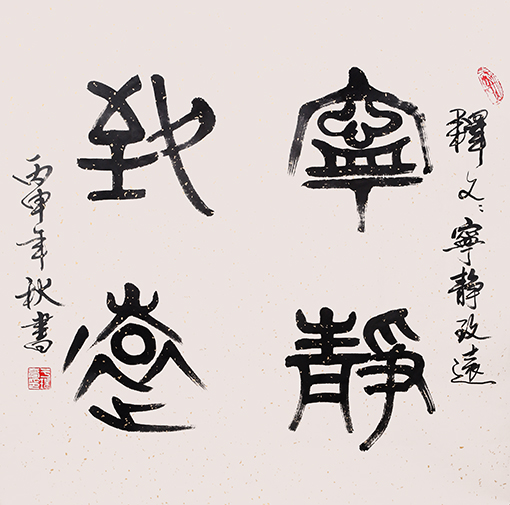 釋文：寧靜致遠
寧靜
致遠
丙申年秋書